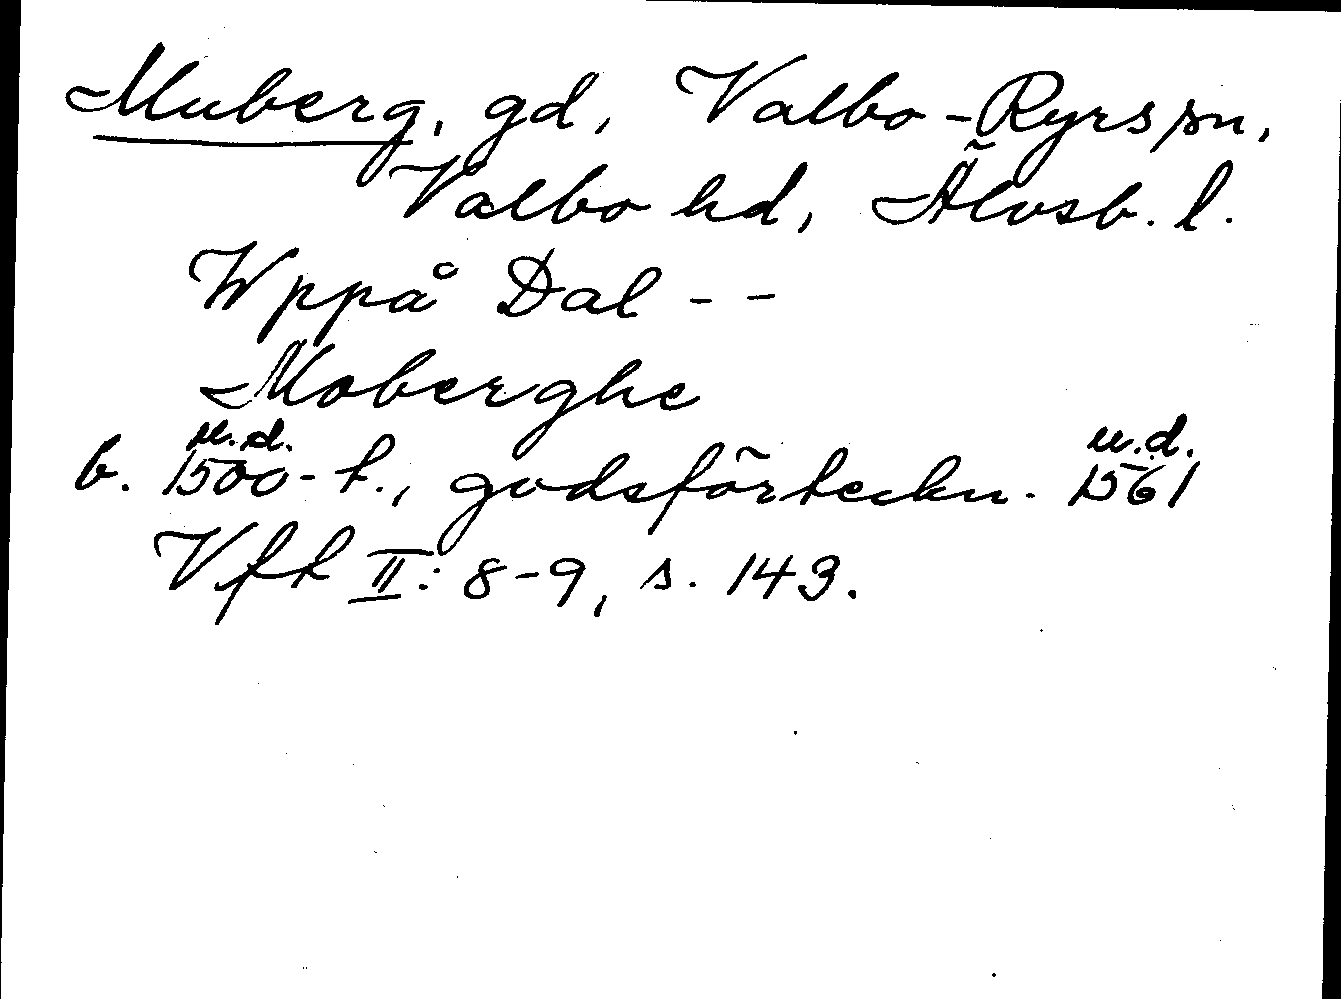 Muberg, gd, Valbo-Ryrs sn,
Valbo hd, Älvsb. l.
Wppå Dal - -
Moberghe
u.d. u.d.
b. 1500-t., godsförteckn. 1561
Vft II: 8-9, s. 143.